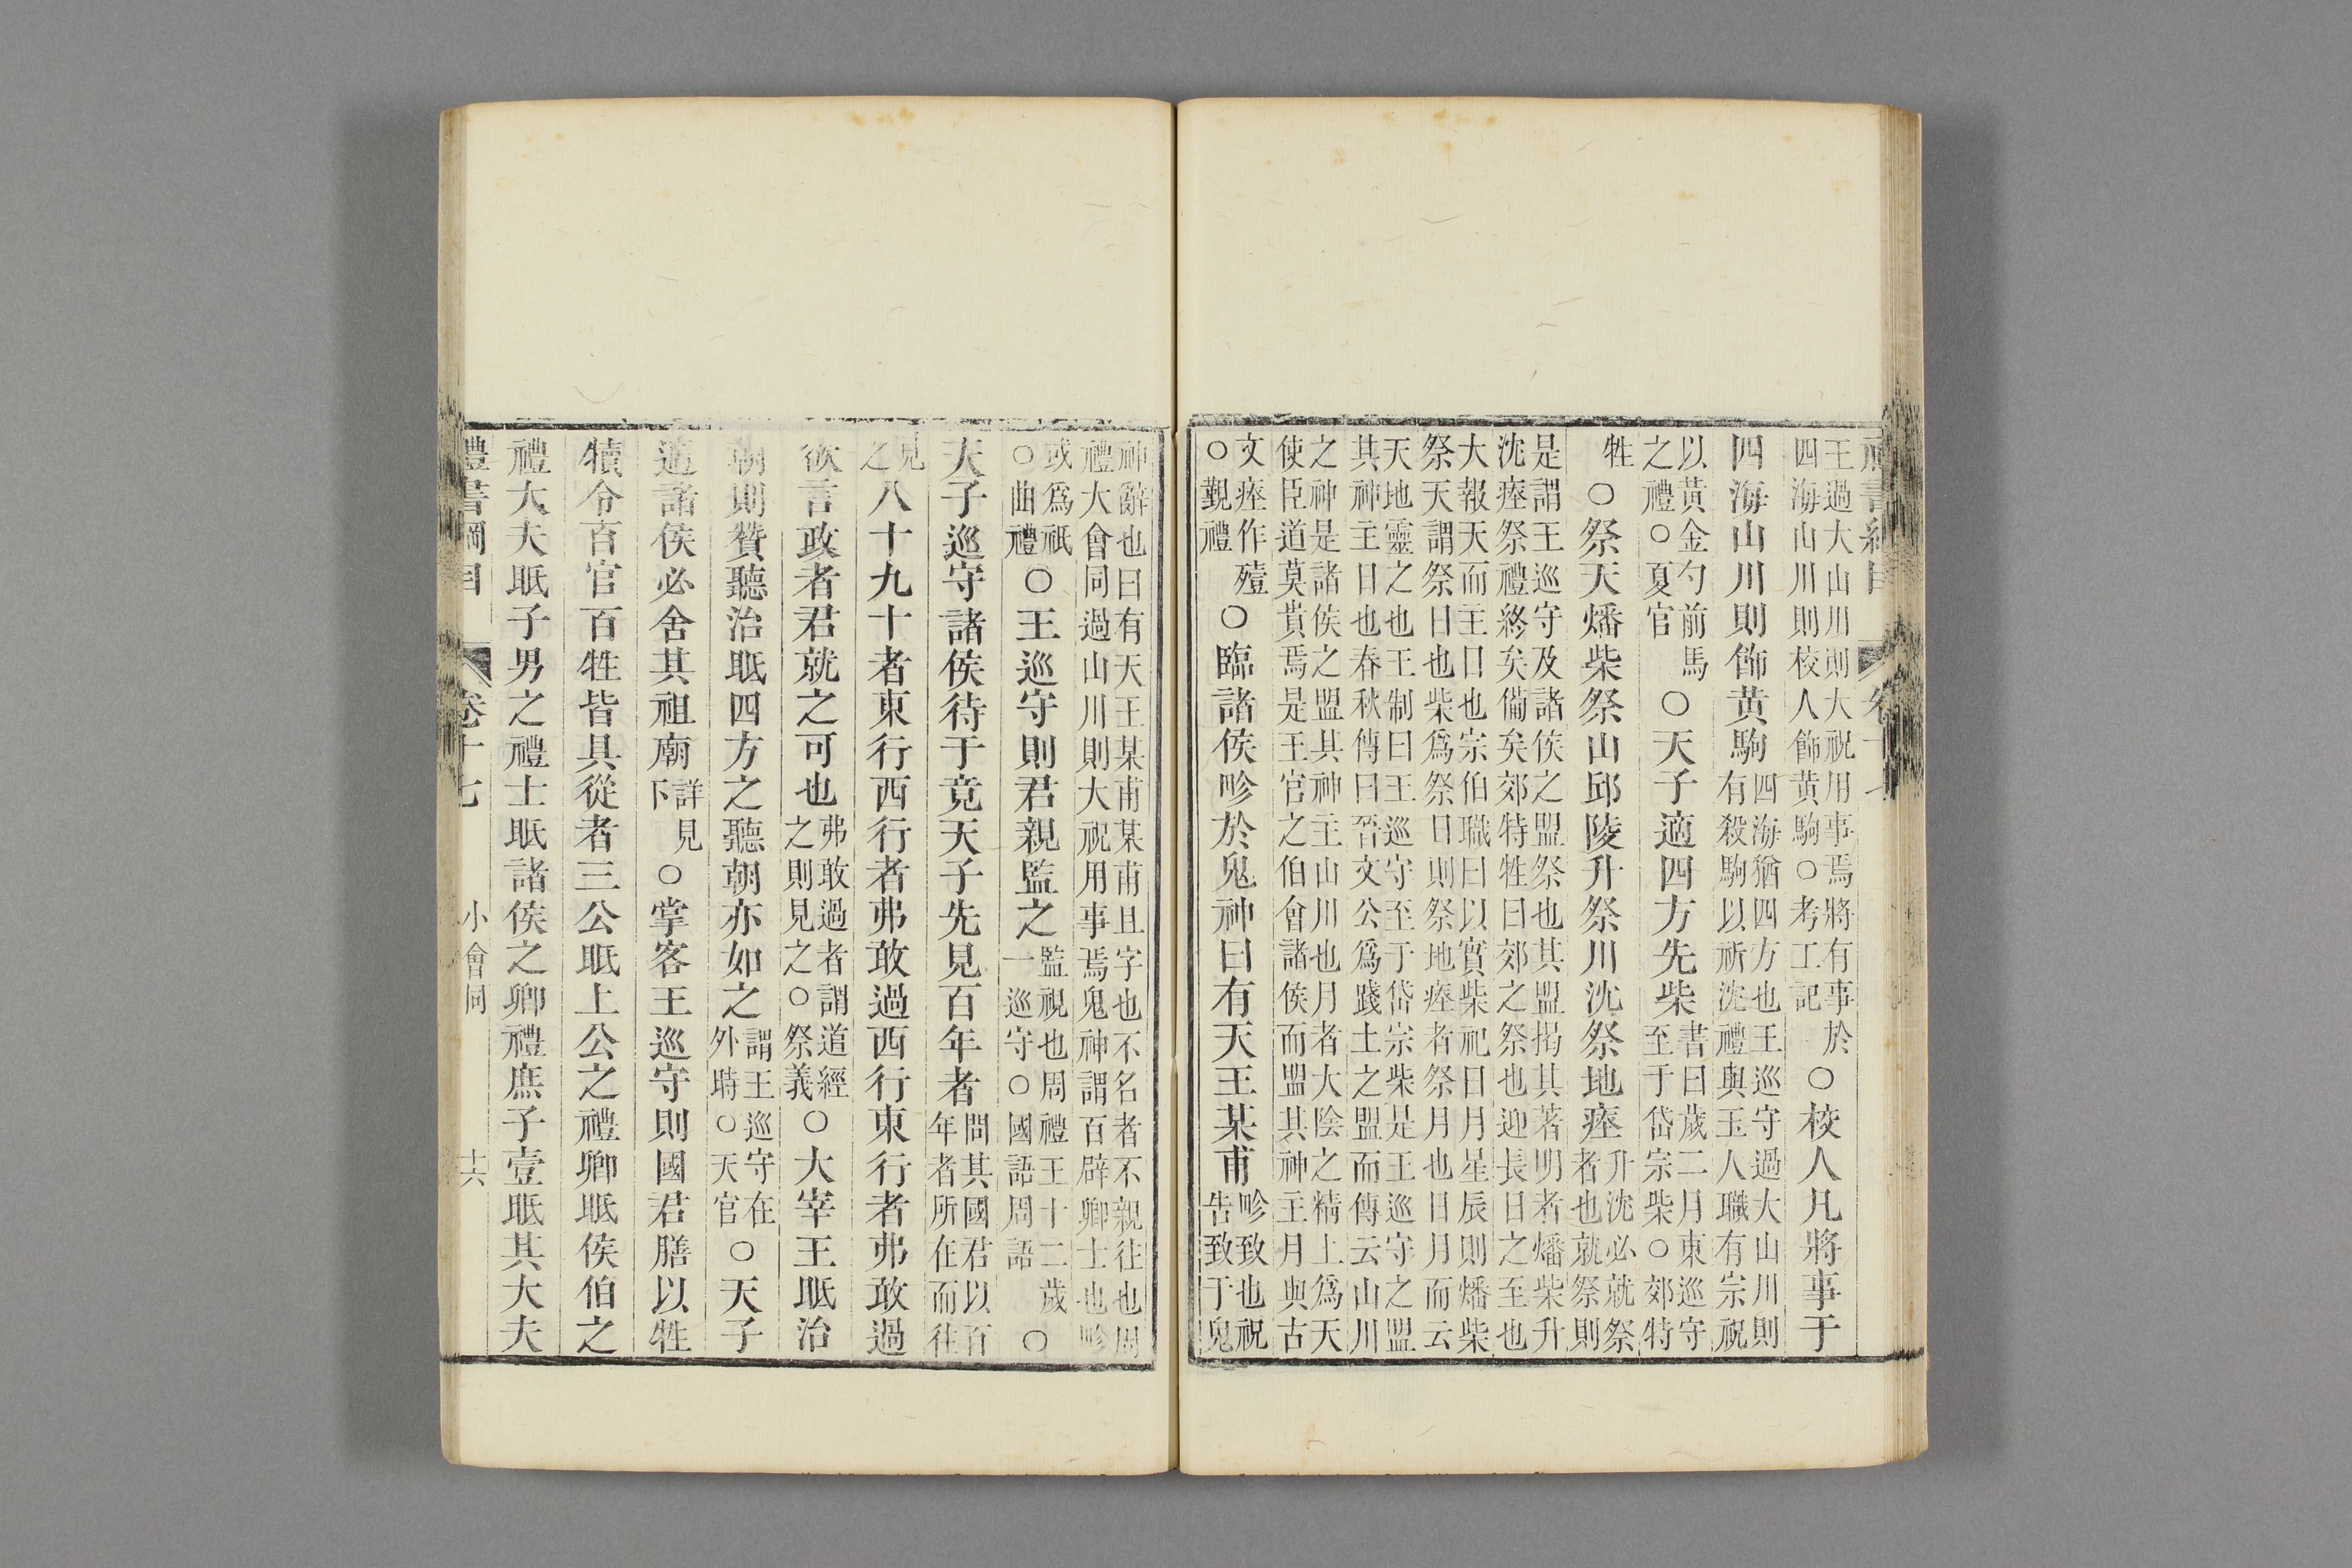 王過大山川則大祝用事焉將有事於
四海山川則校人飾黄駒○考工記
○校人凡將事于
四海山川則飾黄駒
四海猶四方也王巡守過大山川則
有殺駒以祈沈禮與玉人職有宗祝
以黄金勺前馬
之禮○夏官
○天子適四方先柴
書曰歲二月東巡守
至于岱宗柴○郊特
牲
○祭天燔柴祭山邱陵升祭川沈祭地瘞
升沈必就祭
者也就祭則
是謂王巡守及諸侯之盟祭也其盟揭其著明者燔柴升
沈瘞祭禮終矣僃矣郊特牲曰郊之祭也迎長日之至也
大報天而主日也宗伯職曰以實柴祀日月星辰則燔柴
祭天謂祭日也柴爲祭日則祭地瘞者祭月也日月而云
天地靈之也王制曰王巡守至于岱宗柴是王巡守之盟
其神主日也春秋傳曰晉文公爲踐土之盟而傳云山川
之神是諸侯之盟其神主山川也月者大陰之精上爲天
使臣道莫貴焉是王官之伯會諸侯而盟其神主月與古
文瘞作殪
○覲禮
○臨諸侯畛於鬼神曰有天王某甫
畛致也祝
告致于鬼
神辭也曰有天王某甫某甫且字也不名者不親往也周
禮大會同過山川則大祝用事焉鬼神謂百辟卿士也畛
或爲祇
○曲禮
○王巡守則君親監之
監視也周禮王十二歲
一巡守○國語周語
○
天子巡守諸侯待于竟天子先見百年者
問其國君以百
年者所在而往
見
之
八十九十者東行西行者弗敢過西行東行者弗敢過
欲言政者君就之可也
弗敢過者謂道經
之則見之○祭義
○大宰王眡治
朝則贊聽治眡四方之聽朝亦如之
謂王巡守在
外時○天官
○天子
適諸侯必舍其祖廟
詳見
下
○掌客王巡守則國君膳以牲
犢令百官百牲皆具從者三公眡上公之禮卿眡侯伯之
禮大夫眡子男之禮士眡諸侯之卿禮庶子壹眡其大夫
禮書綱目 卷十七 小會同 十六